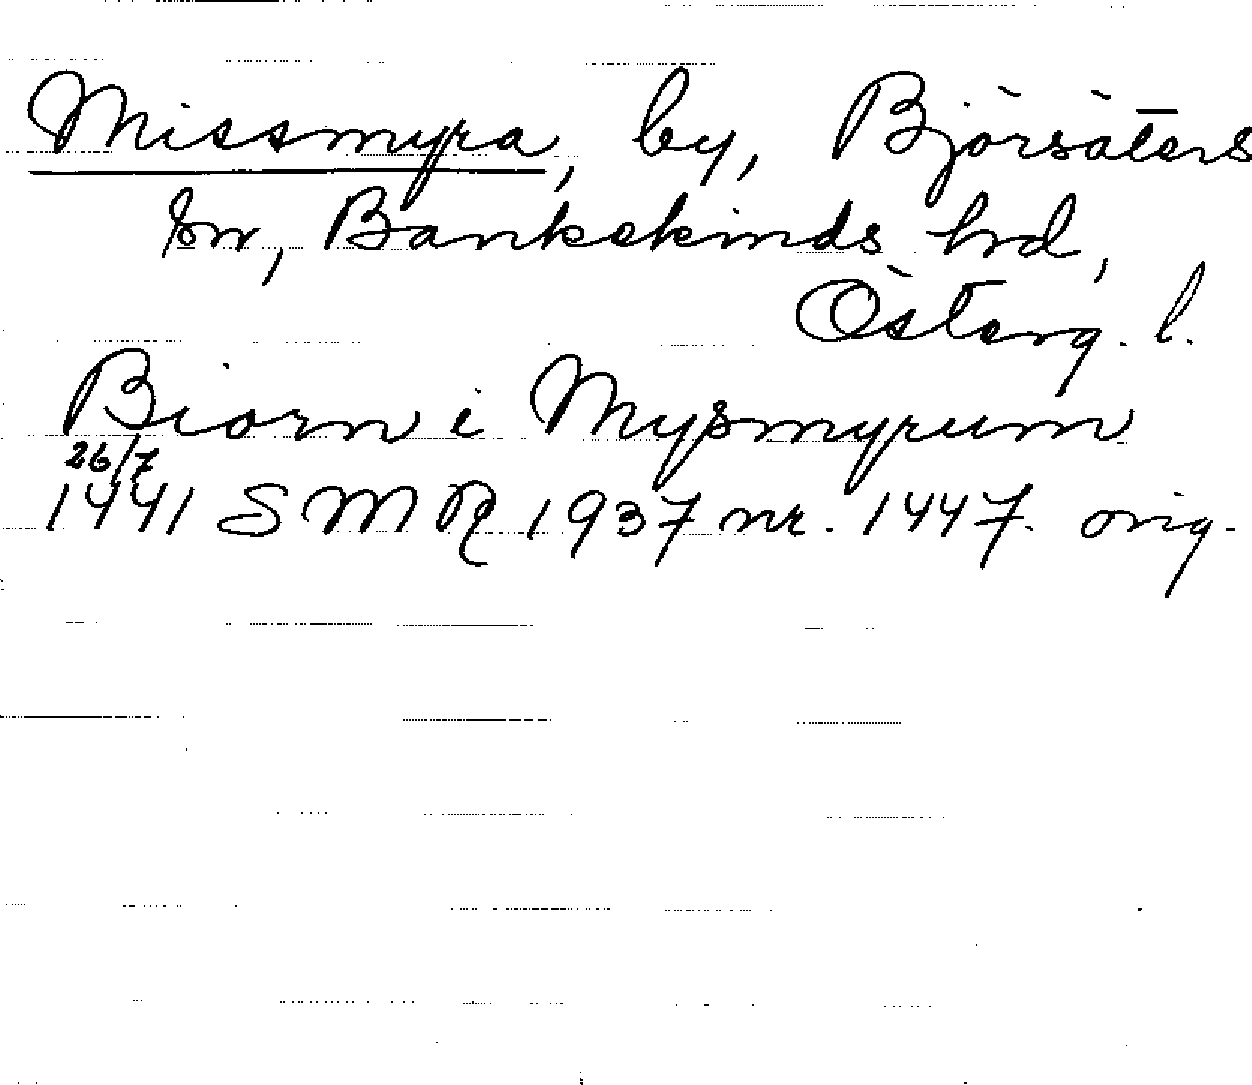 Missmyra, by, Björsäters
sn, Bankekinds hrd,
Österg. l.
Biorn i Mysmyrum
26/7
1441 SMR 1937 nr. 1447. orig.